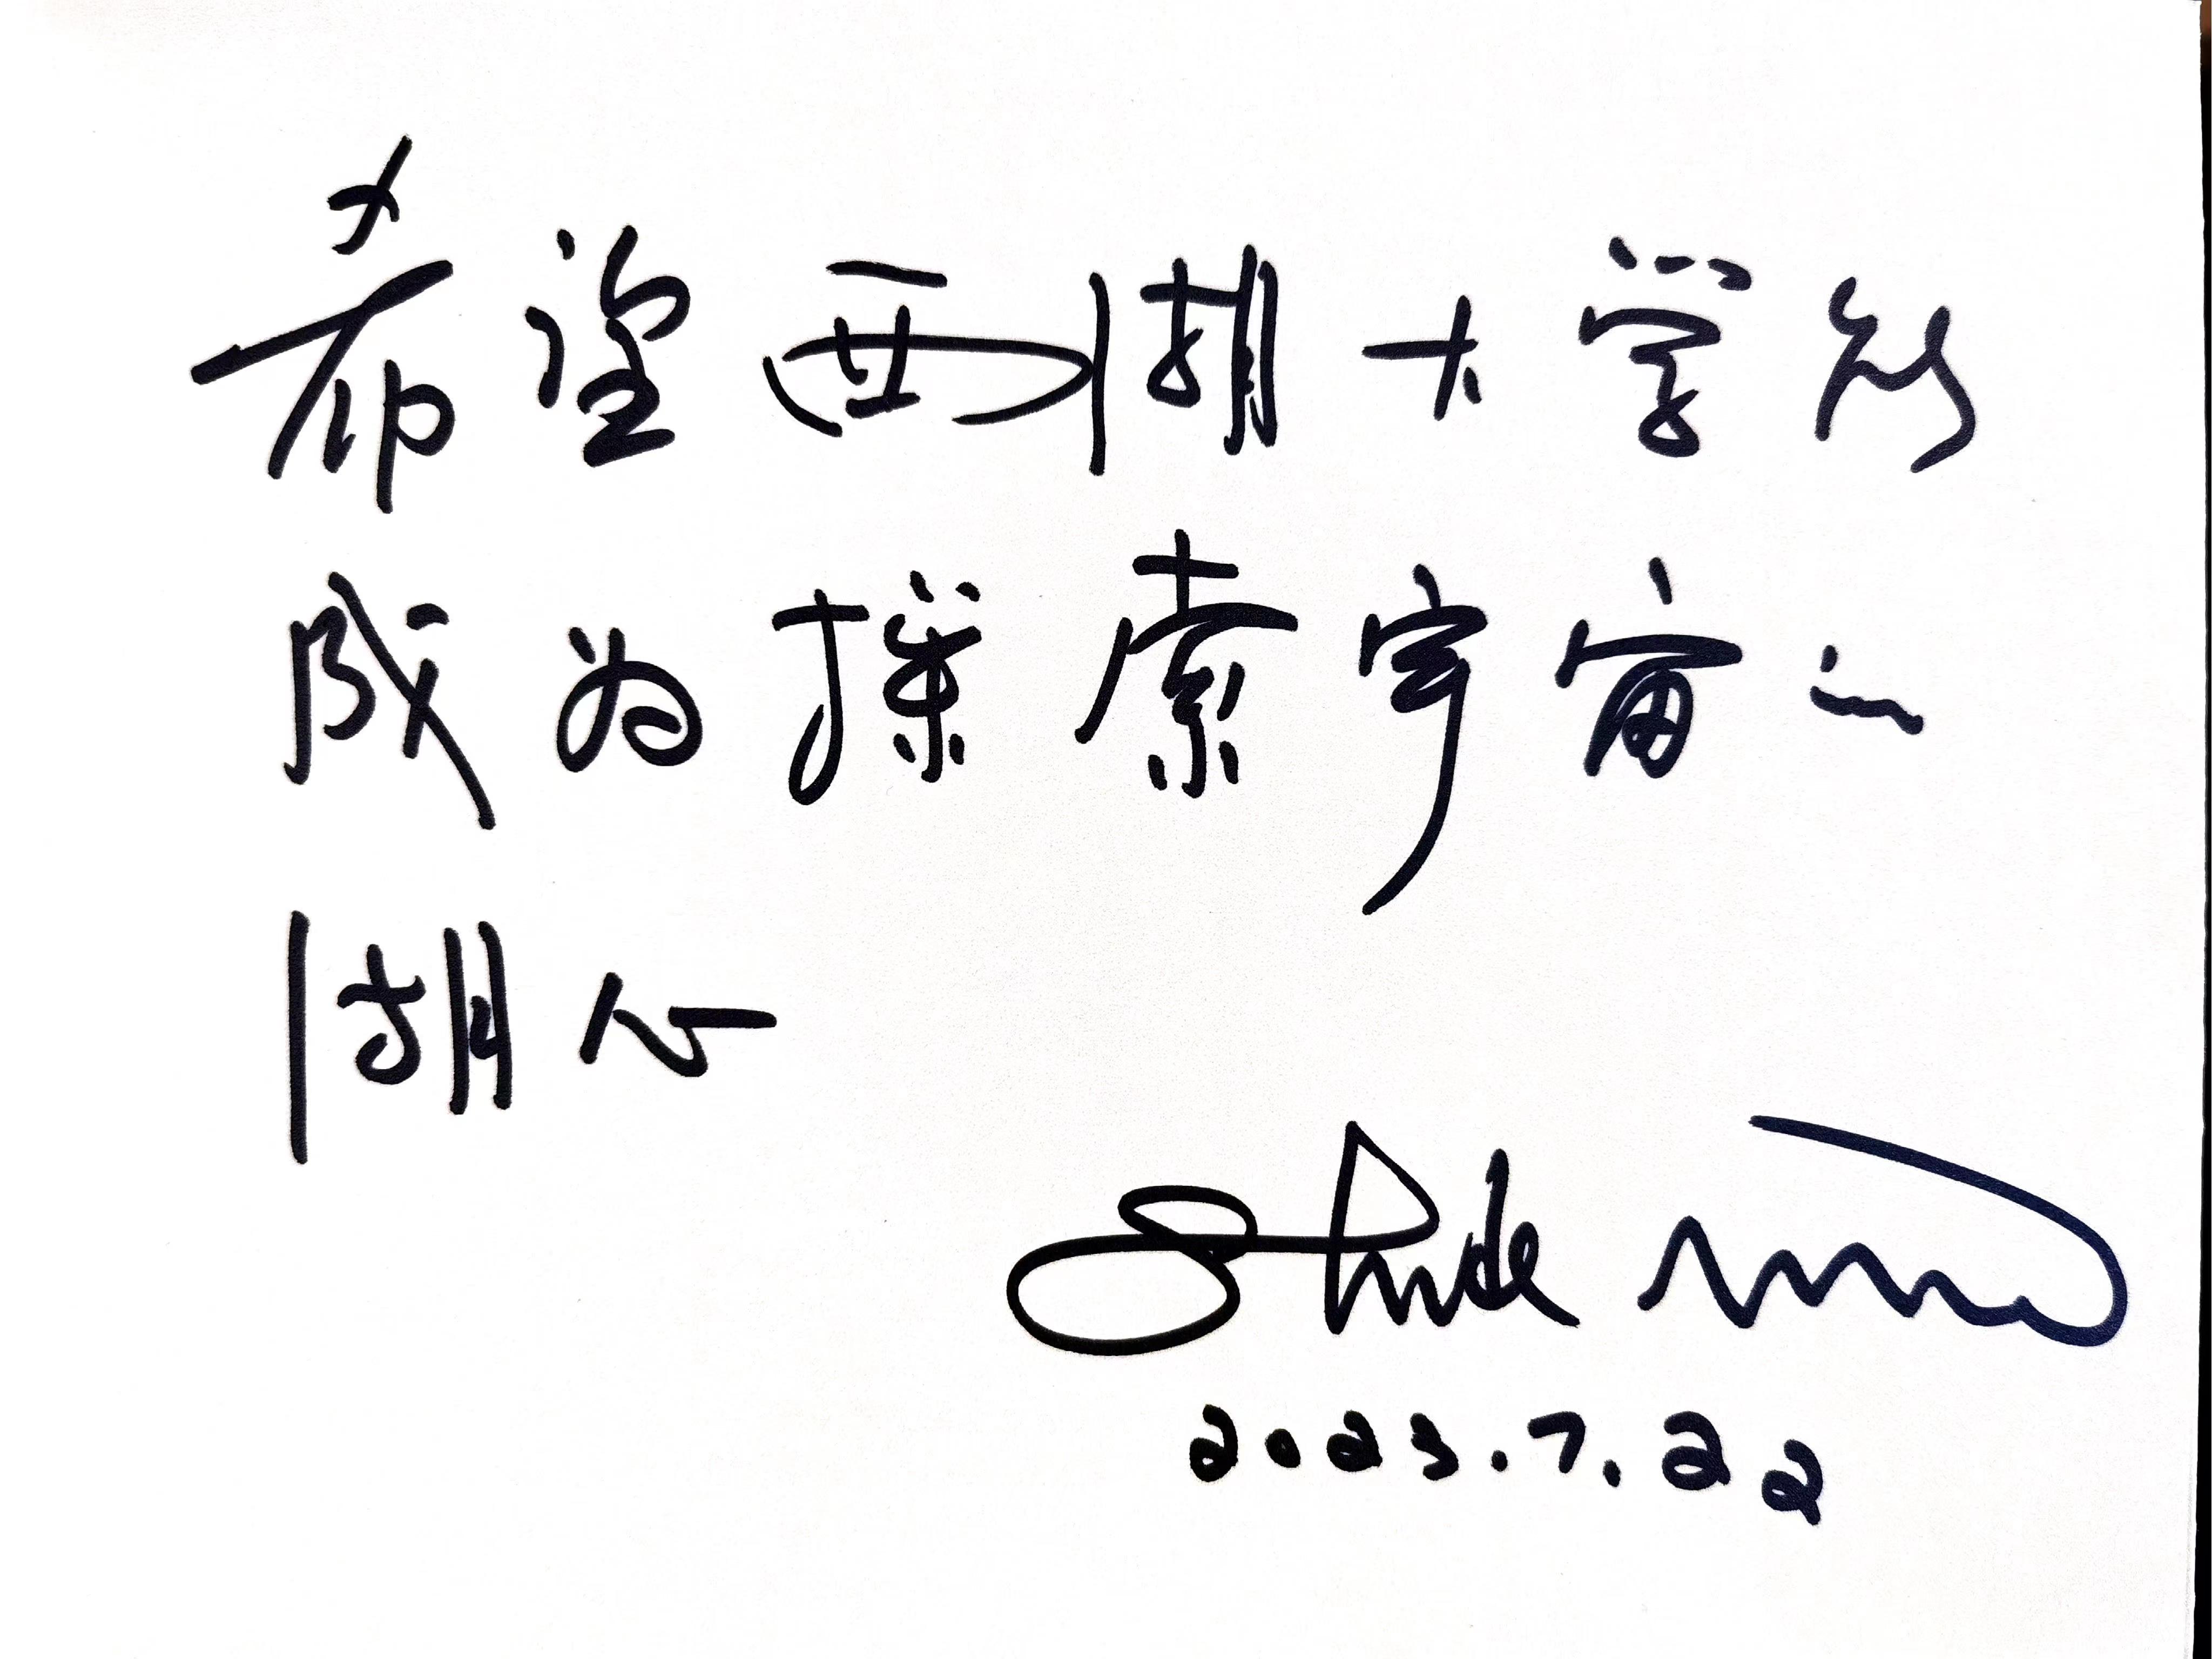 希望西湖大学能
成为探索宇宙之
湖心
Shude Mao
2023.7.22